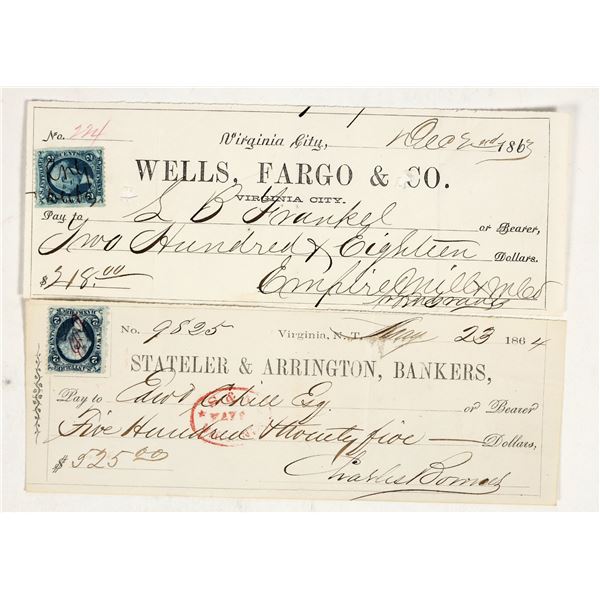 No. 224
Virginia City, Dec 2nd 1863
WELLS, FARGO & CO.
VIRGINIA CITY.
Pay to L B Frankel or Bearer,
Two Hundred & Eighteen Dollars.
$218.00
Empire Mill & M Co
No. 9825 Virginia, N. T. May 23 1864
STATELER & ARRINGTON, BANKERS,
Pay to Edwd Chiee Esq or Bearer
Five Hundred & twenty five Dollars,
$525.00
Charles Bonner